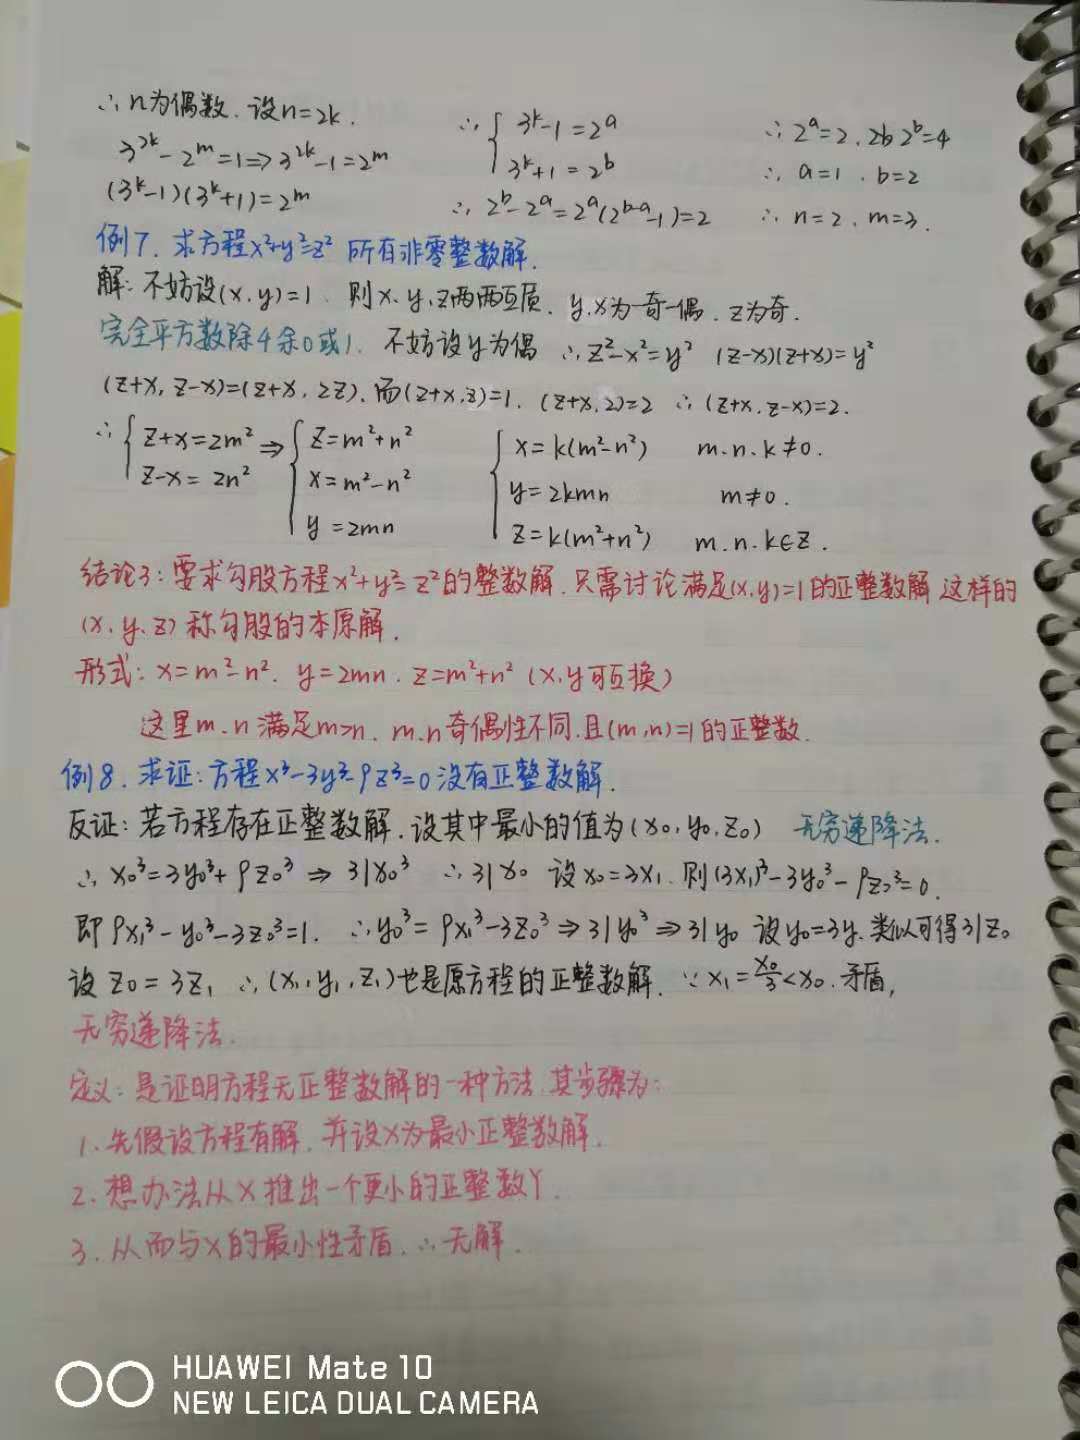 ∴n为偶数.设n=2k.
3^{2k}-2^m=1⇒3^{2k}-1=2^m
(3^k-1)(3^k+1)=2^m
∴{3^k-1=2^a
3^k+1=2^b
∴2^b-2^a=2^a(2^{b-a}-1)=2
∴2^a=2.2b 2^b=4
∴a=1.b=2
∴n=2.m=3.
例7.求方程x²+y²=z² 所有非零整数解.
解:不妨设(x.y)=1.则x.y.z两两互质.y.x为一奇一偶.z为奇.
完全平方数除4余0或1.不妨设y为偶 ∴z²-x²=y² (z-x)(z+x)=y²
(z+x,z-x)=(z+x,2z).而(z+x,z)=1.(z+x,2)=2 ∴(z+x,z-x)=2.
∴{z+x=2m²
z-x=2n²
⇒{z=m²+n²
x=m²-n²
y=2mn
{x=k(m²-n²) m.n.k≠0.
y=2kmn m≠0.
z=k(m²+n²) m.n.k∈Z.
结论3:要求勾股方程x²+y²=z²的整数解.只需讨论满足(x,y)=1的正整数解 这样的
(x.y.z)称勾股的本原解.
形式:x=m²-n².y=2mn.z=m²+n²(x,y可互换)
这里m.n满足m>n.m.n奇偶性不同.且(m,n)=1的正整数.
例8.求证:方程x³-3y³-9z³=0没有正整数解.
反证:若方程存在正整数解.设其中最小的值为(x₀,y₀,z₀) 无穷递降法.
∴x₀³=3y₀³+9z₀³⇒3|x₀³ ∴3|x₀ 设x₀=3x₁.则(3x₁)³-3y₀³-9z₀³=0.
即9x₁³-y₀³-3z₀³=1. ∴y₀³=9x₁³-3z₀³⇒3|y₀³⇒3|y₀ 设y₀=3y₁类似可得3|z₀
设z₀=3z₁ ∴(x₁,y₁,z₁)也是愿方程的正整数解.∵x₁=x₀/3<x₀.矛盾,
无穷递降法.
定义:是证明方程无正整数解的一种方法.其步骤为:
1.先假设方程有解.并设X为最小正整数解.
2.想办法从X推出一个更小的正整数Y.
3.从而与X的最小性矛盾.∴无解.
HUAWEI Mate 10
NEW LEICA DUAL CAMERA